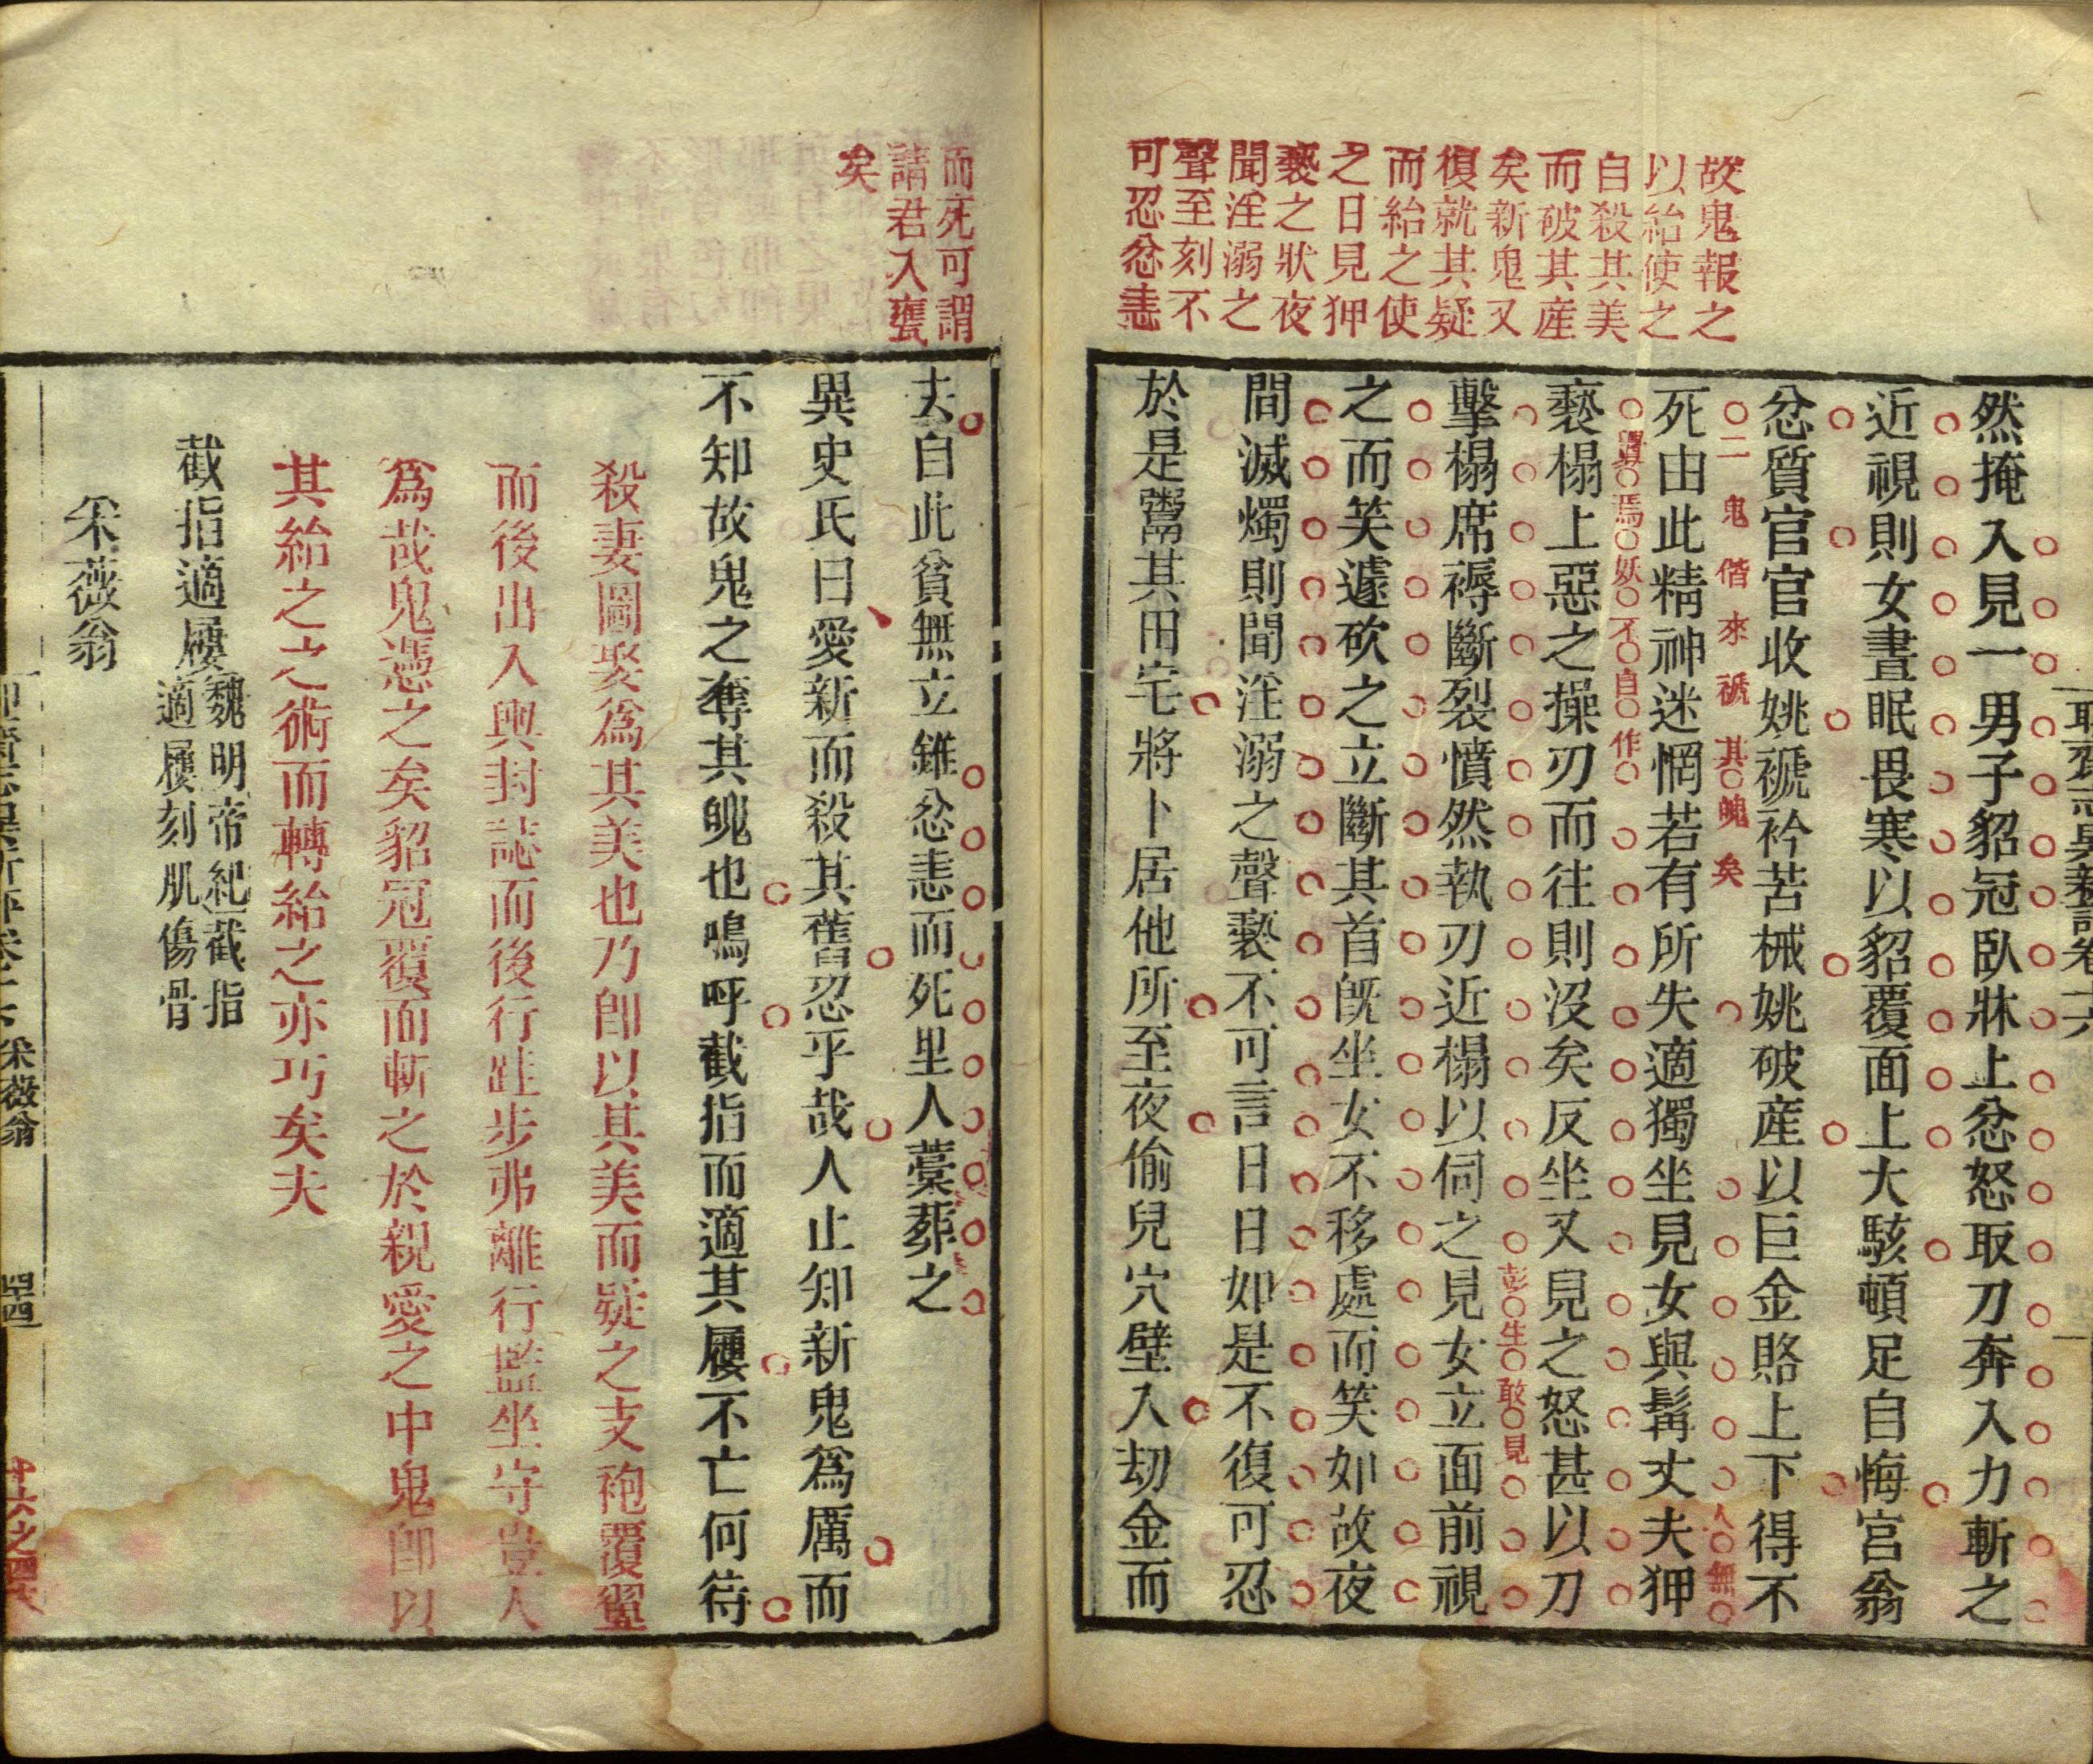 故鬼報之
以紿使之
自殺其美
而破其產
矣新鬼又
復就其疑
而紿之使
之日見狎
褻之狀夜
聞淫溺之
聲至刻不
可忍忿恚
然掩入見一男子貂冠臥牀上忿怒取刀奔入力斬之
近視則女晝眠畏寒以貂覆面上大駭頓足自悔宮翁
忿質官官收姚褫衿苦械姚破產以巨金賂上下得不
二鬼偕來褫其魄矣
人無
死由此精神迷惘若有所失適獨坐見女與髯丈夫狎
釁焉妖不自作
褻榻上惡之操刃而往則沒矣反坐又見之怒甚以刀
彭生敢見
擊榻席褥斷裂憤然執刃近榻以伺之見女立面前視
之而笑遽砍之立斷其首既坐女不移處而笑如故夜
間滅燭則聞淫溺之聲褻不可言日日如是不復可忍
於是鬻其田宅將卜居他所至夜偷兒穴壁入劫金而
而死可謂
請君入甕
矣
去自此貧無立錐忿恚而死里人藁葬之
異史氏曰愛新而殺其舊忍乎哉人止知新鬼為厲而
不知故鬼之奪其魄也嗚呼截指而適其屨不亡何待
殺妻圖娶為其美也乃卽以其美而疑之支袍覆翣
而後出入輿封誌而後行跬步弗離行監坐守豈人
為哉鬼憑之矣貂冠覆面斬之於親愛之中鬼卽以
其紿之之術而轉紿之亦巧矣夫
截指適屨魏明帝紀截指
適屨刻肌傷骨
采薇翁
采薇翁
四四